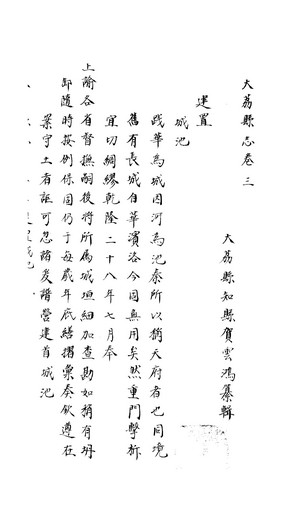 大荔縣志卷三
大荔縣知縣賀雲鴻纂輯
建置
城池
踐華為城因河為池秦所以稱天府者也同境
舊有長城自華濱洛今固無用矣然重門擊柝
宜切綢繆乾隆二十八年七月奉
上諭各省督撫嗣後將所屬城垣細加查勘如稍有坍
卸隨時按例保固仍于每歲年底繕摺彙奏欽遵在
案守土者詎可忽諸爰譜營建首城池